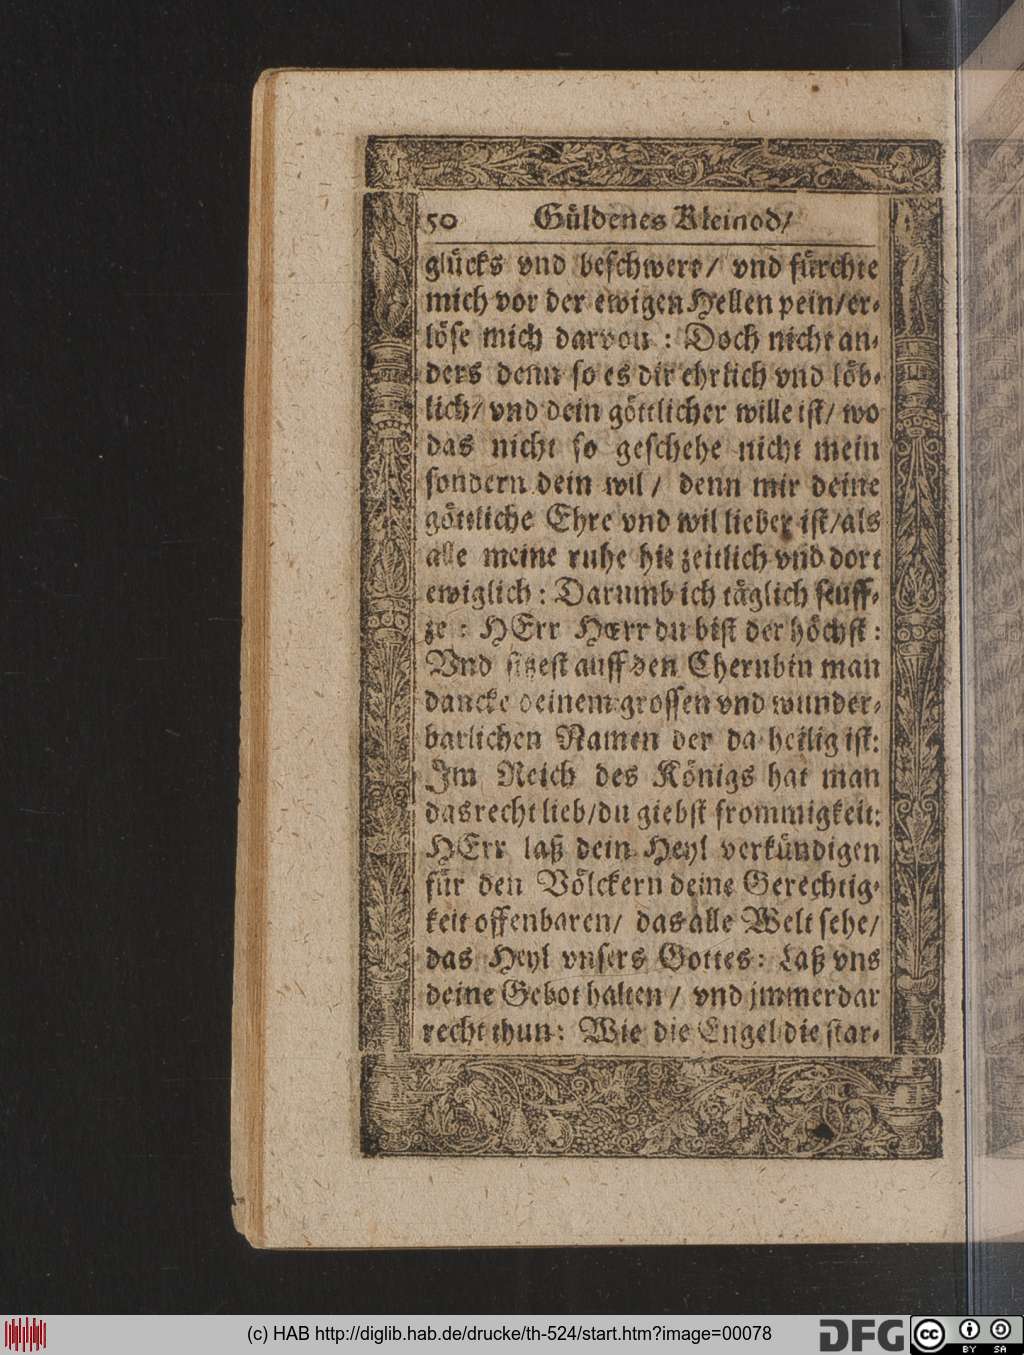 50 Güldenes Kleinod/
glücks vnd beschwert/ vnd fürchte
mich vor der ewigen Hellen pein/er-
löse mich darvon : Doch nicht an-
ders denn so es dir ehrlich vnd löb-
lich/ vnd dein göttlicher wille ist/ wo
das nicht so geschehe nicht mein
sondern dein wil / denn mir deine
göttliche Ehre vnd wil lieber ist/als
alle meine ruhe hie zeitlich vnd dort
ewiglich : Darumb ich täglich seuff-
ze : HErr HErr du bist der höchst :
Vnd sitzest auff den Cherubin man
dancke deinem grossen vnd wunder-
barlichen Namen der da heilig ist:
Im Reich des Königs hat man
das recht lieb/du giebst frommigkeit:
HErr laß dein Heyl verkündigen
für den Völckern deine Gerechtig-
keit offenbaren/ das alle Welt sehe/
das Heyl vnsers Gottes : Laß vns
deine Gebot halten / vnd jmmerdar
recht thun : Wie die Engel die star-
(c) HAB http://diglib.hab.de/drucke/th-524/start.htm?image=00078
DFG
cc BY SA